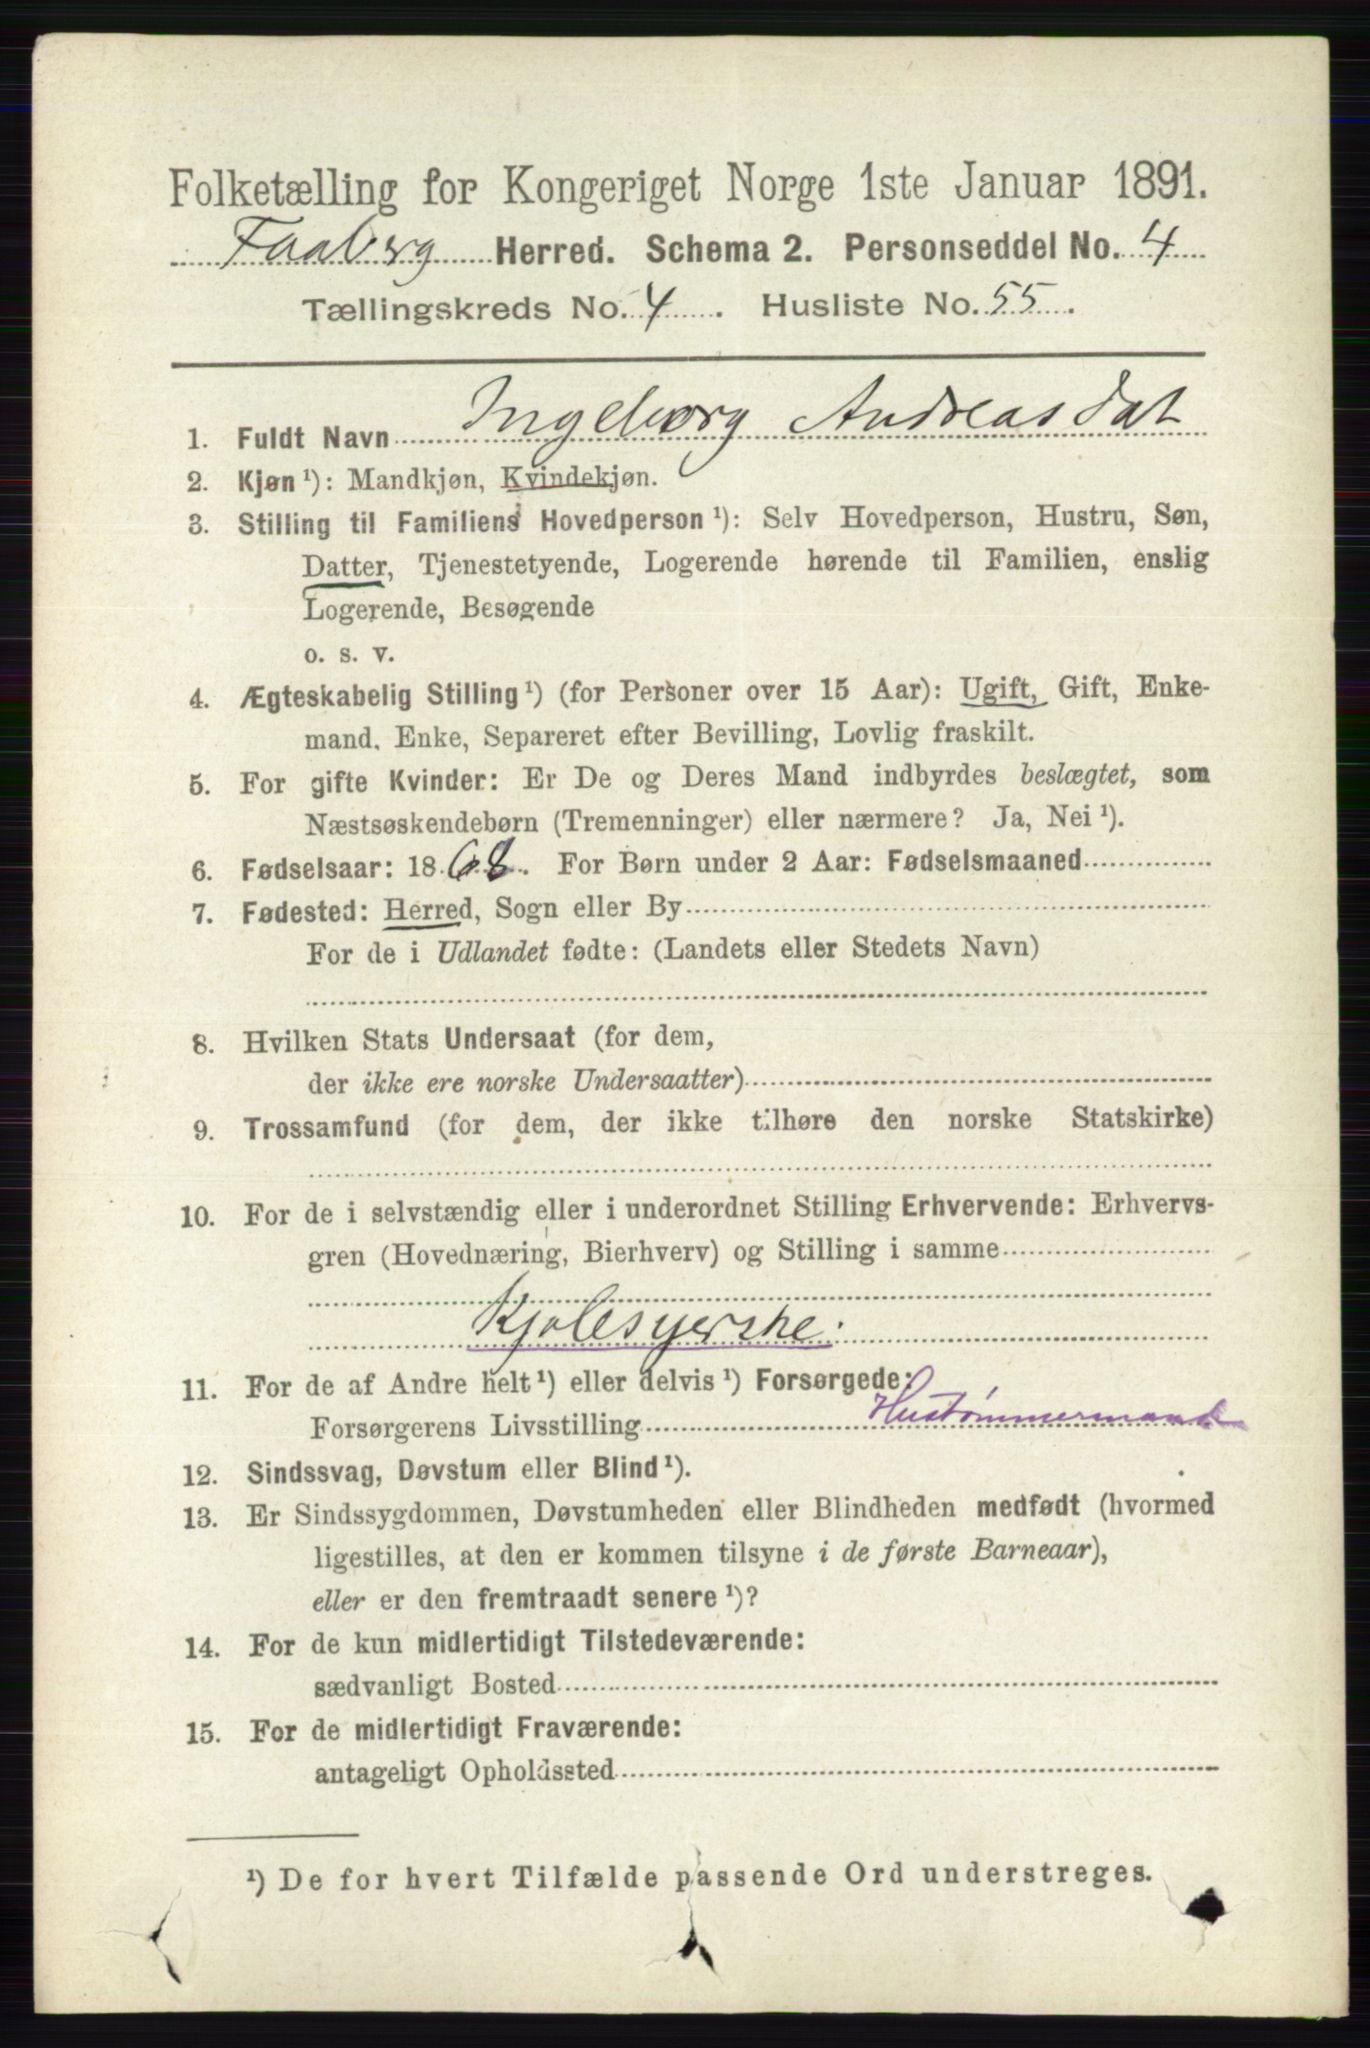 Folketælling for Kongeriget Norge 1ste Januar 1891.
Faaberg Herred. Schema 2. Personseddel No. 4
Tællingskreds No. 4. Husliste No. 55.
1. Fuldt Navn Ingeborg Andreasdat
2. Kjøn ¹): Mandkjøn, Kvindekjøn.
3. Stilling til Familiens Hovedperson ¹): Selv Hovedperson, Hustru, Søn,
Datter, Tjenestetyende, Logerende hørende til Familien, enslig
Logerende, Besøgende
o. s. v.
4. Ægteskabelig Stilling ¹) (for Personer over 15 Aar): Ugift, Gift, Enke-
mand, Enke, Separeret efter Bevilling, Lovlig fraskilt.
5. For gifte Kvinder: Er De og Deres Mand indbyrdes beslægtet, som
Næstsøskendebørn (Tremenninger) eller nærmere? Ja, Nei ¹).
6. Fødselsaar: 1868. For Børn under 2 Aar: Fødselsmaaned
7. Fødested: Herred, Sogn eller By
For de i Udlandet fødte: (Landets eller Stedets Navn)
8. Hvilken Stats Undersaat (for dem,
der ikke ere norske Undersaatter)
9. Trossamfund (for dem, der ikke tilhøre den norske Statskirke)
10. For de i selvstændig eller i underordnet Stilling Erhvervende: Erhvervs-
gren (Hovednæring, Bierhverv) og Stilling i samme
Kjolesyerske.
11. For de af Andre helt ¹) eller delvis ¹) Forsørgede:
Forsørgerens Livsstilling Hustømmermand
12. Sindssvag, Døvstum eller Blind ¹).
13. Er Sindssygdommen, Døvstumheden eller Blindheden medfødt (hvormed
ligestilles, at den er kommen tilsyne i de første Barneaar),
eller er den fremtraadt senere ¹)?
14. For de kun midlertidigt Tilstedeværende:
sædvanligt Bosted
15. For de midlertidigt Fraværende:
antageligt Opholdssted
¹) De for hvert Tilfælde passende Ord understreges.